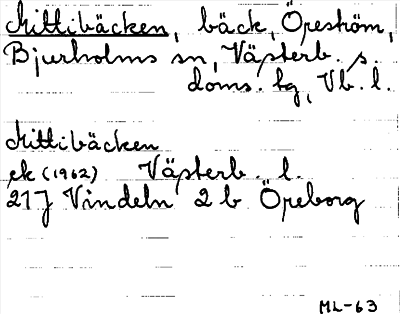 Mittibäcken, bäck, Öreström,
Bjurholms sn, Västerb. s.
doms. lg, Vb. l.
Mittibäcken
ek (1962) Västerb. l.
21J Vindeln 2 b Öreborg
ML-63